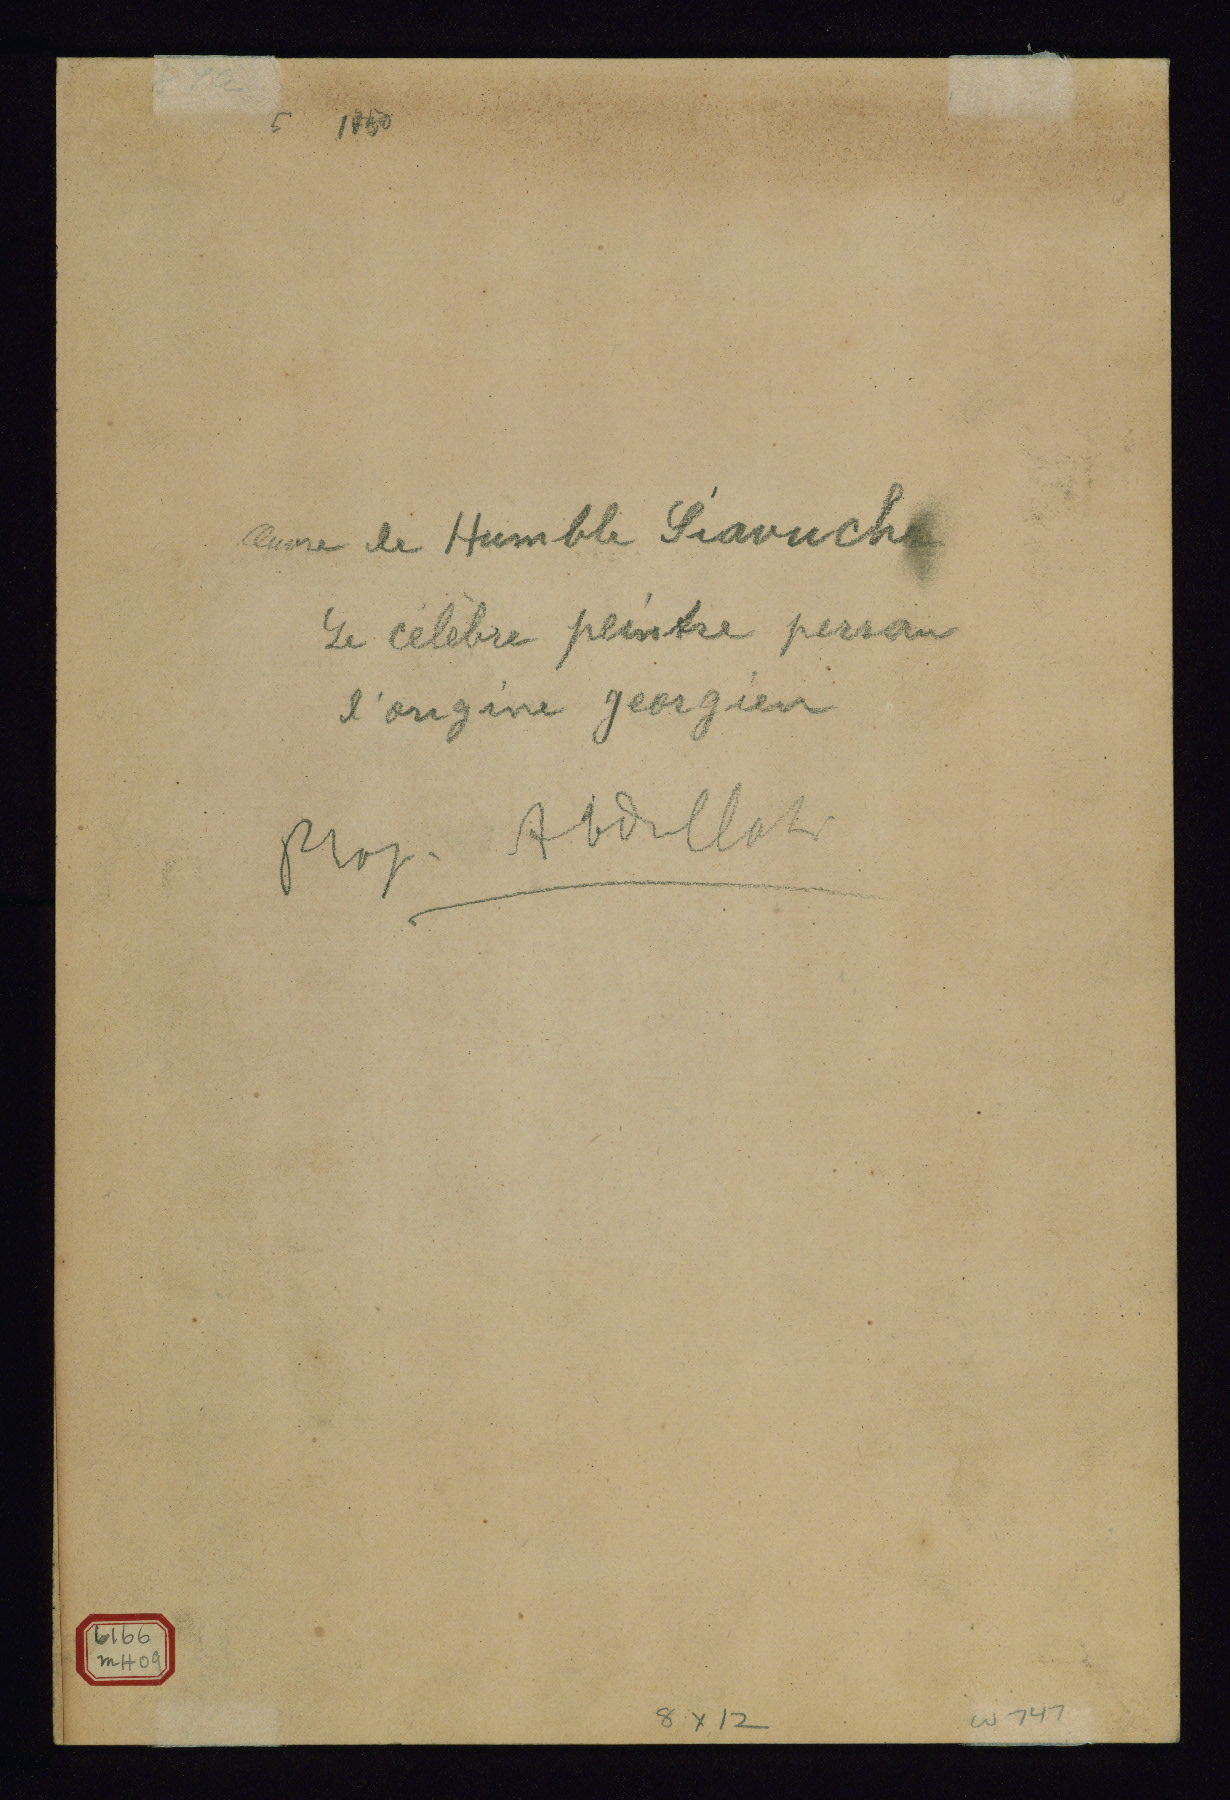 5 1850
Œuvre de Humble Siavuche
Le célèbre peintre persan
d'origine georgien
Prof. Abdullah
6166
mH09
8 x 12
W 747